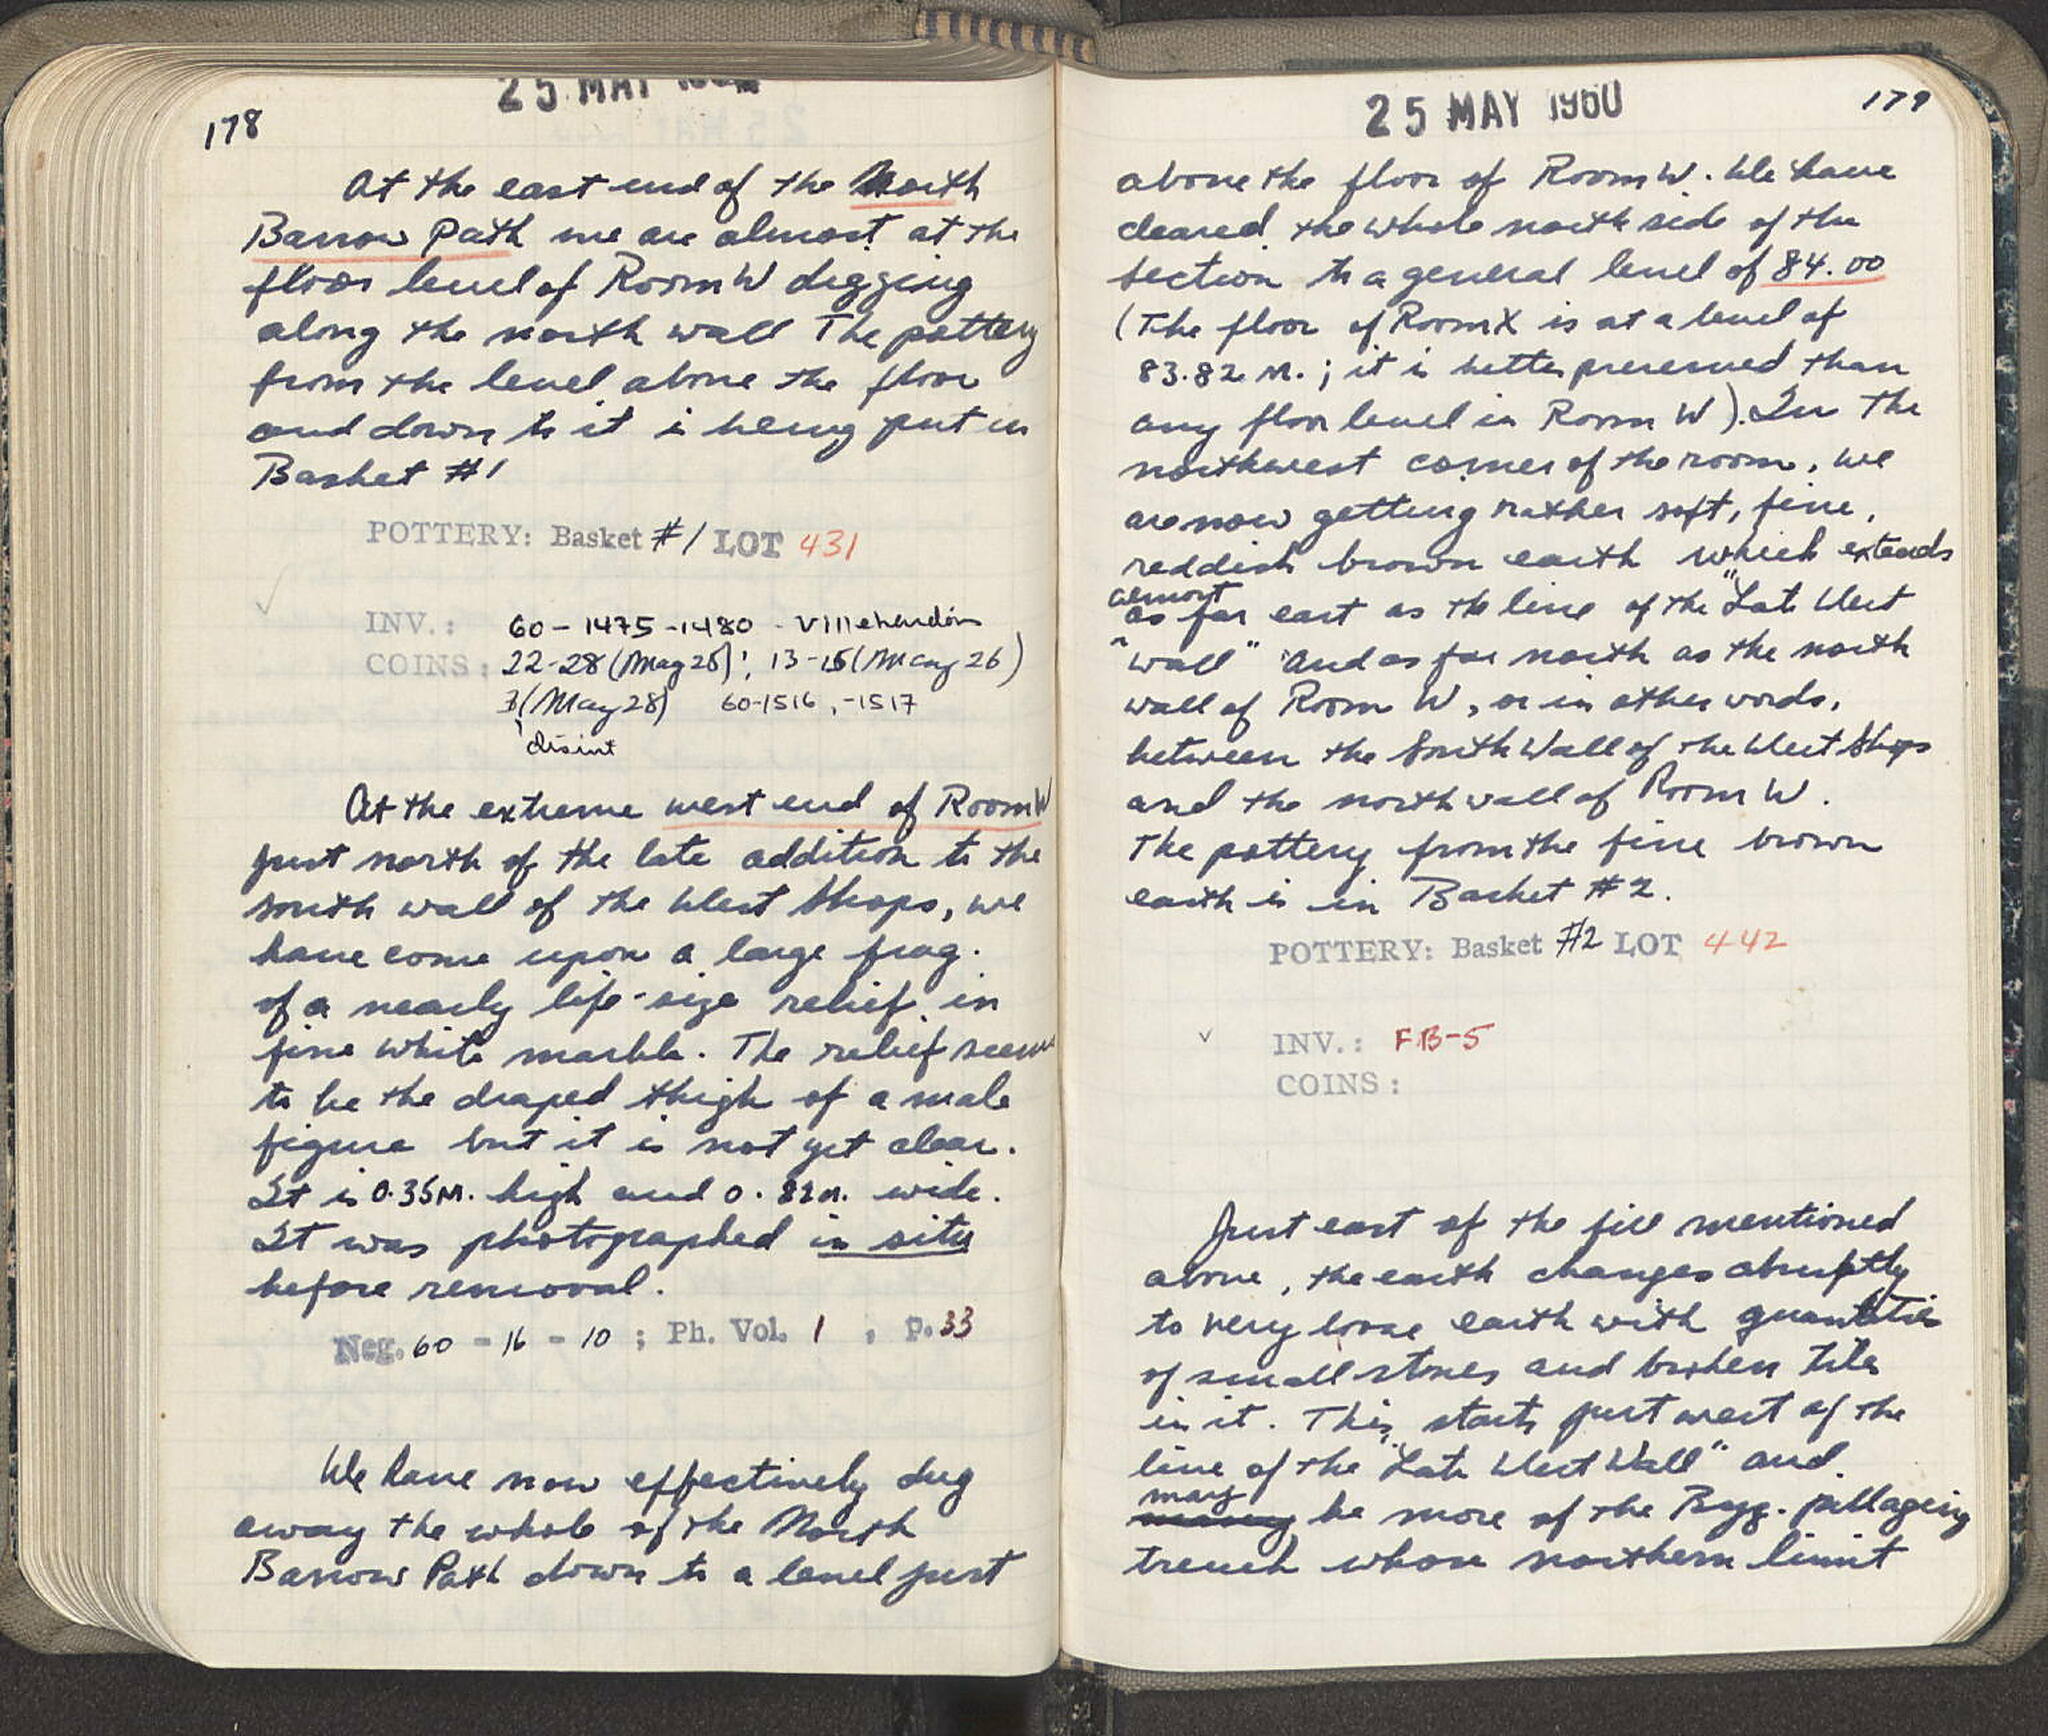 178
25 MAY
At the east end of the North
Barrow Path we are almost at the
floor level of Room W digging
along the north wall The pottery
from the level above the floor
and down to it is being put in
Basket #1
POTTERY: Basket #1 LOT 431
INV.: 60-1475-1480 - Villehardouin
COINS: 22-28 (May 25); 13-15 (May 26)
3 (May 28) 60-1516, -1517
disint
At the extreme west end of Room W
just north of the late addition to the
south wall of the West Shops, we
have come upon a large frag.
of a nearly life-size relief in
fine white marble. The relief seems
to be the draped thigh of a male
figure but it is not yet clear.
It is 0.35 M. high and 0.82 M. wide.
It was photographed in situ
before removal.
Neg. 60 - 16 - 10 ; Ph. Vol. 1 , p. 33
We have now effectively dug
away the whole of the North
Barrow Path down to a level just
25 MAY 1960
179
above the floor of Room W. We have
cleared the whole north side of the
section to a general level of 84.00
(The floor of Room X is at a level of
83.82 M.; it is better preserved than
any floor level in Room W). In the
northwest corner of the room, we
are now getting rather soft, fine,
reddish brown earth which extends
almost
as far east as the line of the "Late West
Wall" and as far north as the north
wall of Room W, or in other words,
between the South Wall of the West Shops
and the north wall of Room W.
The pottery from the fine brown
earth is in Basket #2.
POTTERY: Basket #2 LOT 442
INV.: FB-5
COINS:
Just east of the fill mentioned
above, the earth changes abruptly
to very loose earth with quantities
of small stones and broken tiles
in it. This starts just west of the
line of the "Late West Wall" and
may
be more of the Byz. pillaging
trench whose northern limit